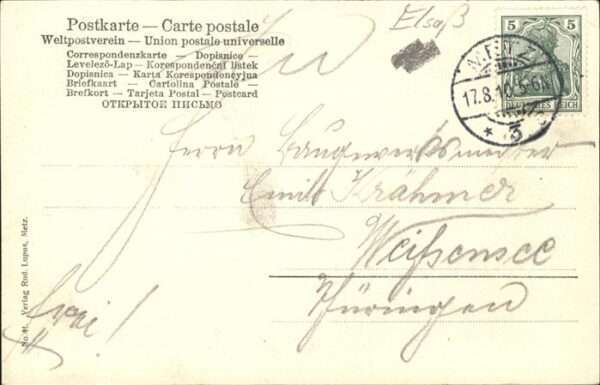 Postkarte — Carte postale
Weltpostverein — Union postale universelle
Correspondenzkarte — Dopisnice —
Levelező-Lap — Korespondenční listek
Dopisnica — Karta Korespondencyjna
Briefkaart — Cartolina Postale —
Brefkort — Tarjeta Postal — Postcard
ОТКРЫТОЕ ПИСЬМО
Elsaß
5 5
DEUTSCHES REICH
17.8.10.5-6N
* 3
An
Herrn Baugewerksmeister
Emil Krähmer
Weißensee
Thüringen
frei!
Verlag Rud. Lupus, Metz.